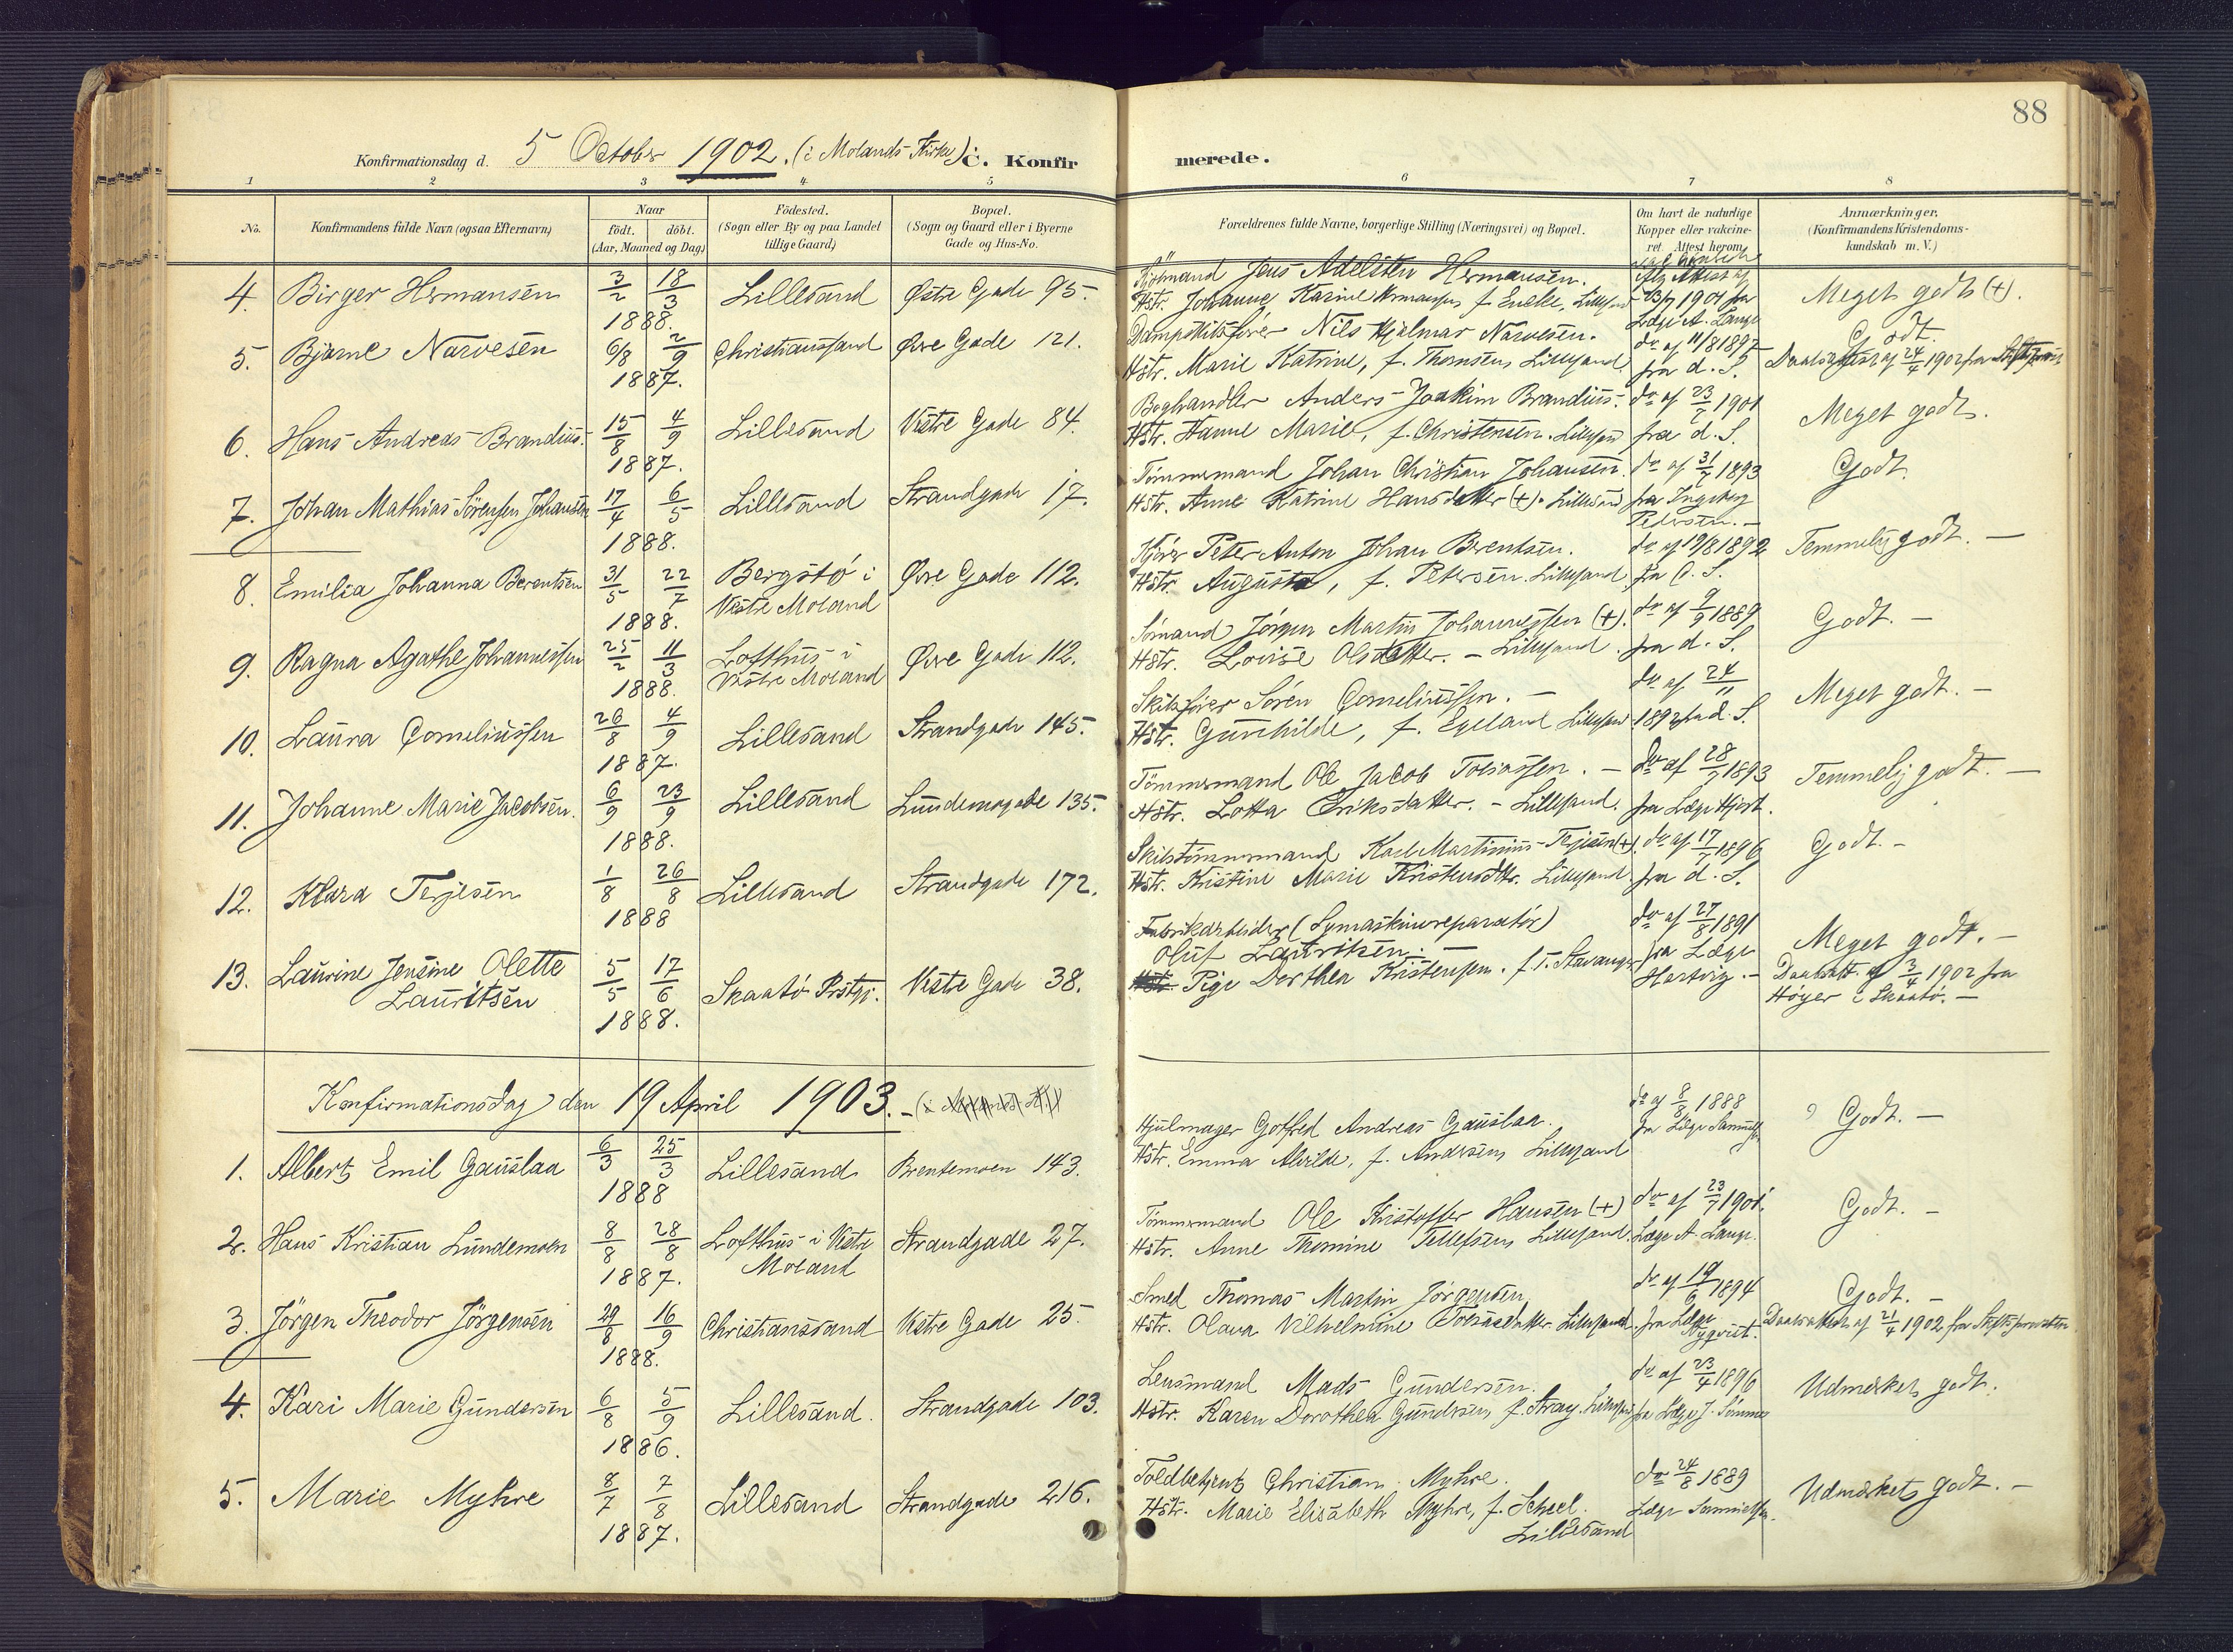 88
Konfirmationsdag d. 5 October 1902. (i Molands Kirke) C. Konfirmerede.
1 2 3 4 5 6 7 8
No.
Konfirmandens fulde Navn (ogsaa Efternavn)
Naar
födt. döbt.
(Aar, Maaned og Dag)
Födested.
(Sogn eller By og paa Landet
tillige Gaard)
Bopæl.
(Sogn og Gaard eller i Byerne
Gade og Hus-No.
Forældrenes fulde Navne, borgerlige Stilling (Næringsvei) og Bopæl.
Om havt de naturlige
Kopper eller vakcine-
ret. Attest herom
Anmærkninger.
(Konfirmandens Kristendoms-
kundskab m. V.)
4. Birger Hermansen 3/2 18/3 1888. Lillesand Østre Gade 95.
Sjömand Jens Adelsten Hermansen.
Hstr. Johanne Karine Hermansen, f. Lillesand
1901 fra
Læge A. Lange
Meget godt (+).
5. Bjarne Narvesen 6/8 2/9 1887. Christianssand Øvre Gade 121.
Dampskibsfører Nils Hjalmar Narvesen.
Hstr. Marie Katrine, f. Thomsen, Lillesand
do af 11/8 1897
fra d. S.
Godt.
Daabsattest af 24/4 1902 fra
6. Hans Andreas Brandius. 15/8 4/9 1887. Lillesand Vestre Gade 84.
Boghandler Anders Joakim Brandius.
Hstr. Hanne Marie, f. Christensen. Lillesand
do af 23/7 1901
fra d. S.
Meget godt.
7. Johan Mathias Sörensen Johansen 17/4 6/5 1888. Lillesand Strandgade 17.
Tömmermand Johan Christian Johansen.
Hstr. Anne Katrine Hansdatter (+). Lillesand
do af 31/7 1893
fra Ingeborg
Pedersen. —
Godt.
8. Emilia Johanna Berentsen 31/5 22/7 1888. Bergstö i
Vestre Moland
Øvre Gade 112.
Peter Anton Johan Berentsen.
Hstr. Augusta, f. Petersen. Lillesand
do af 19/8 1892
Temmelig godt. —
9. Ragna Agathe Johannessen 25/2 11/3 1888. Lofthus i
Vestre Moland
Øvre Gade 112.
Sömand Jörgen Martin Johannessen (+).
Hstr. Louise Olsdatter. — Lillesand.
do af 9/9 1889
fra d. S.
Godt. —
10. Laura Corneliussen 26/8 4/9 1887. Lillesand Strandgade 145.
Skibsfører Sören Corneliussen. —
Hstr. Gunhilde, f. Egeland Lillesand.
do af 24/11
1892 fra d. S.
Meget godt. —
11. Johanne Marie Jacobsen. 6/9 23/9 1888. Lillesand Lundemogade 135.
Tömmermand Ole Jacob Tobiassen. —
Hstr. Lotta Eriksdatter. — Lillesand.
do af 28/7 1893
fra Læge Hjort.
Temmelig godt. —
12. Klara Terjesen 1/8 26/8 1888 Lillesand Strandgade 172.
Skibstömmermand Karl Martinius Terjesen (+).
Hstr. Kristine Marie Kristensdtr. Lillesand.
do af 17/7 1896
fra d. S.
Godt. —
13. Laurine Jensine Olette
Lauritsen
5/5 17/6 1888. Skaatö Prstgj. Vestre Gade 38.
Fabrikarbeider (Symaskinreparatör)
Oluf Lauritsen. —
Pige Dorthea Kristensen. f. T. Stavanger
do af 27/8 1891
fra Læge
Hartvig. —
Meget godt. —
Daabsatt. af 3/4 1902 fra
Höyer i Skaatö. —
Konfirmationsdag den 19 April 1903. —
1. Albert Emil Gauslaa 6/3 25/3 1888 Lillesand Brentemoen 143.
Hjulmager Gotfred Andreas Gauslaa.
Hstr. Emma Alvilde, f. Andersen, Lillesand
do af 8/8 1888
fra Læge Samuelsen
Godt. —
2. Hans Kristian Lundemoen 8/8 28/8 1887. Lofthus i Vestre
Moland
Strandgade 27.
Tömmermand Ole Kristoffer Hansen (+)
Hstr. Anne Thomine Tellefsen, Lillesand.
do af 23/7 1901.
Læge A. Lange.
Godt. —
3. Jörgen Theodor Jörgensen 29/8 16/9 1888. Christianssand Vestre Gade 25.
Smed Thomas Martin Jörgensen,
Hstr. Olava Vilhelmine Tobiasdatter. Lillesand.
do af 19/6 1894
fra Læge
Nyqvist.
Godt. —
Daabsattest af 21/4 1902 fra
4. Kari Marie Gundersen 6/8 5/9 1886. Lillesand. Strandgade 103.
Lensmand Mads Gundersen.
Hstr. Karen Dorothea Gundersen, f. Aray. Lillesand
do af 23/4 1896
fra Læge J. Sömme
Udmerket godt.
5. Marie Myhre 8/7 7/8 1887. Lillesand Strandgade 216.
Toldbetjent Christian Myhre.
Hstr. Marie Elisabeth Myhre, f. Scheel.
Lillesand
do 24/8 1889
Læge Samuelsen.
Udmerket godt. —